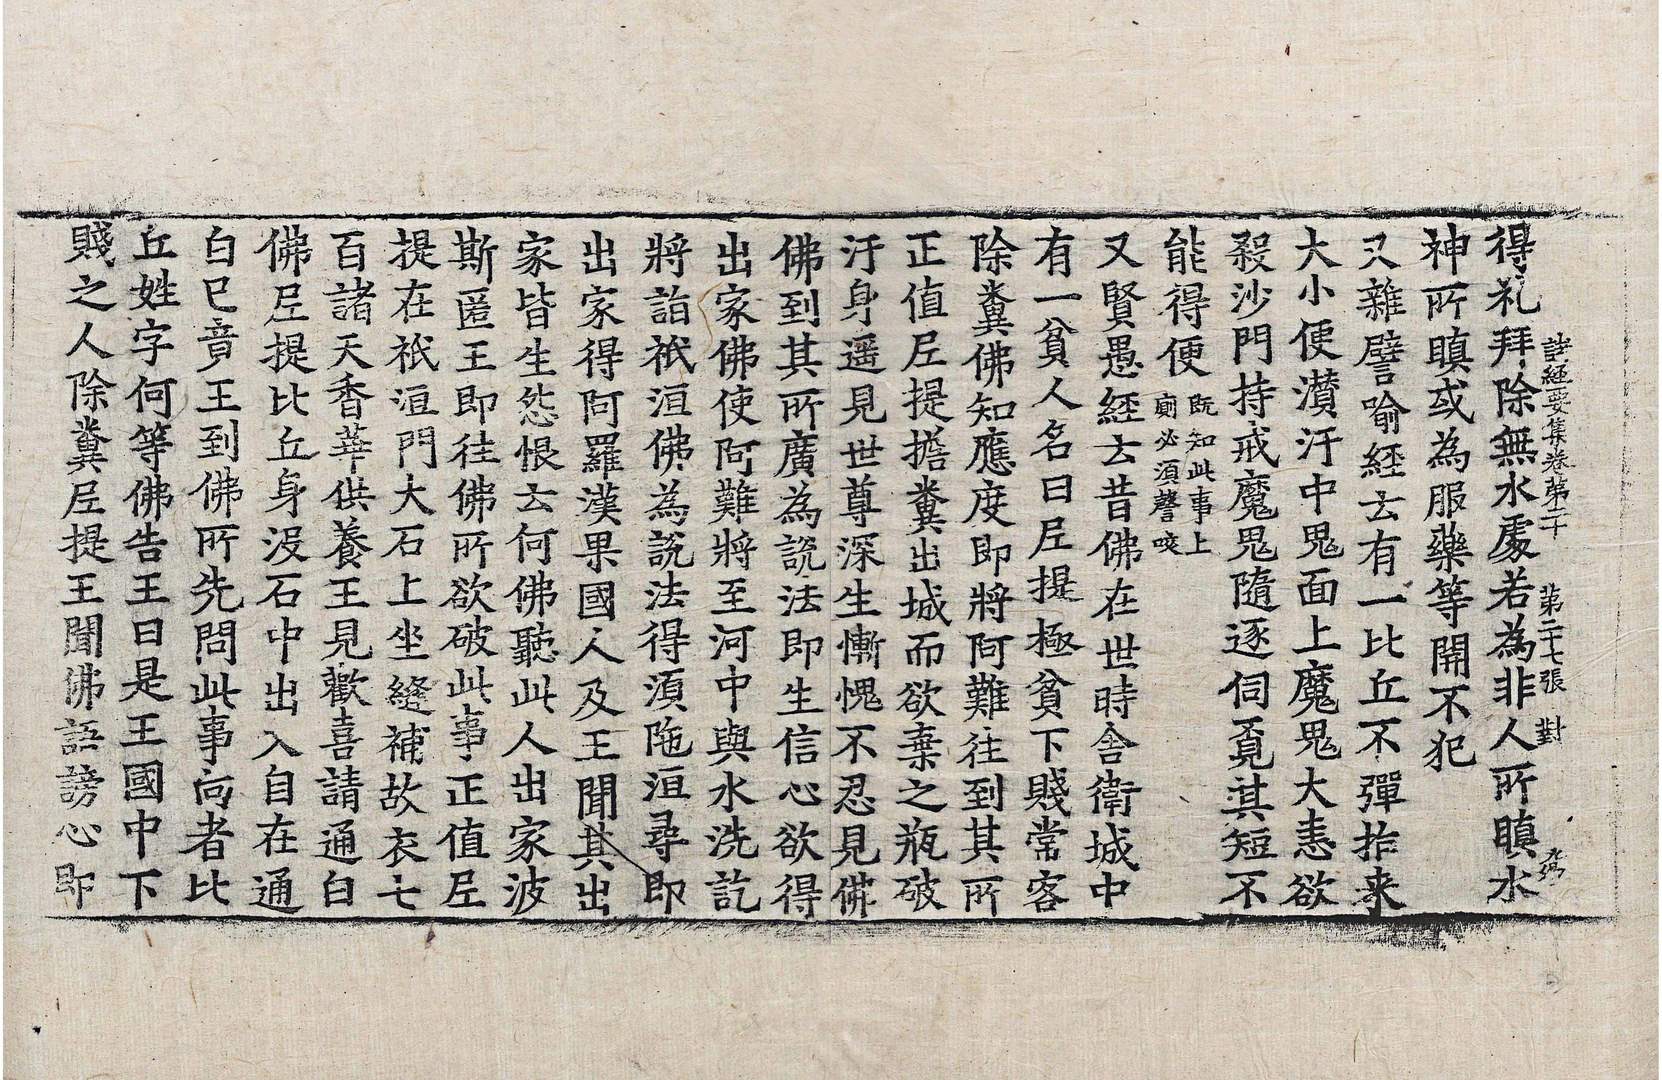 諸經要集卷第二十　第二十七張　對
得礼拜除無水處若為非人所瞋水
神所瞋或為服藥等開不犯
又雜譬喻經云有一比丘不彈指来
大小便濽汙中鬼面上魔鬼大恚欲
殺沙門持戒魔鬼隨逐伺覔其短不
能得便既知此事上廁必須謦咳
又賢愚經云昔佛在世時舍衛城中
有一貧人名曰𡰱提極貧下賤常客
除糞佛知應度即將阿難往到其所
正值𡰱提擔糞出城而欲棄之瓶破
汙身遥見世尊深生慚愧不忍見佛
佛到其所廣為說法即生信心欲得
出家佛使阿難將至河中與水洗訖
將詣祇洹佛為說法得湏陁洹尋即
出家得阿羅漢果國人及王聞其出
家皆生怨恨云何佛聽此人出家波
斯匿王即往佛所欲破此事正值𡰱
提在祇洹門大石上坐縫補故衣七
百諸天香華供養王見歡喜請通白
佛𡰱提比丘身沒石中出入自在通
白已竟王到佛所先問此事向者比
丘姓字何等佛告王曰是王國中下
賤之人除糞𡰱提王聞佛語謗心即